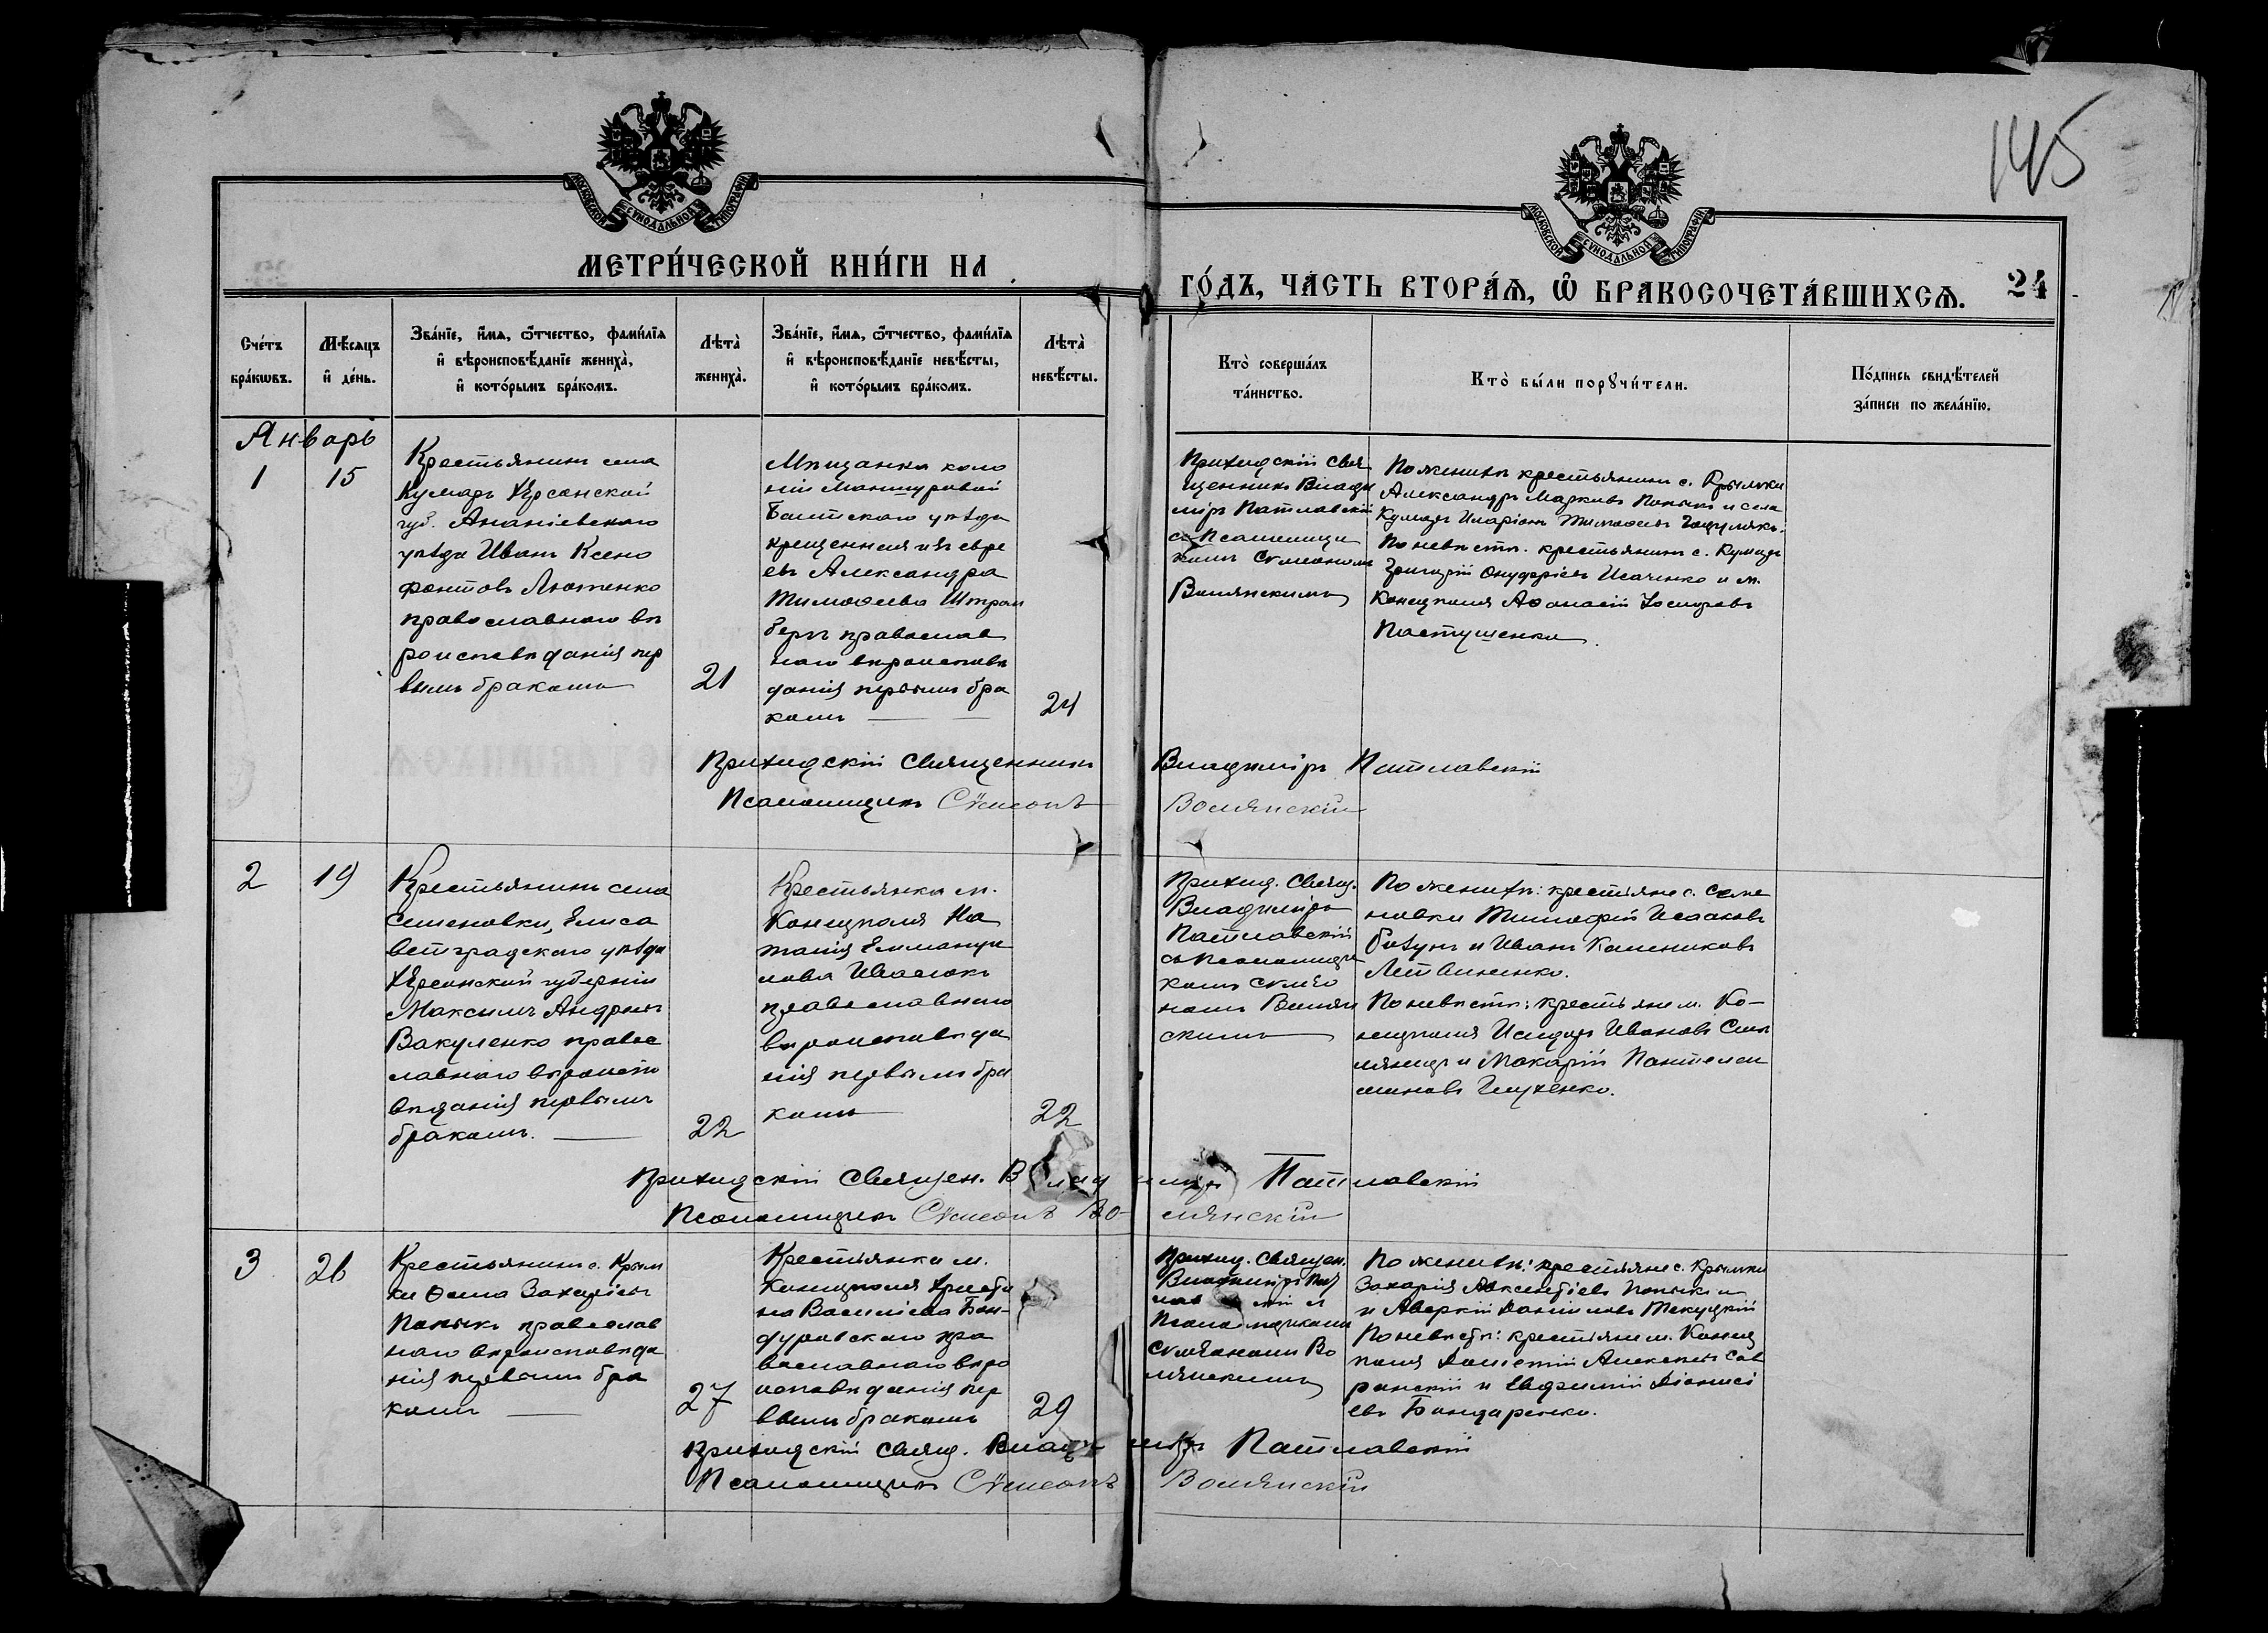 145
МОСКОВСКОЙ СѴНОДАЛЬНОЙ ТИПОГРАФІИ
МОСКОВСКОЙ СѴНОДАЛЬНОЙ ТИПОГРАФІИ
МЕТРИ́ЧЕСКОЙ КНИ́ГИ НА
ГО́ДЪ, ЧА́СТЬ ВТОРА́Ѧ, Ѽ БРАКОСОЧЕТА́ВШИХСѦ.
24
Сче́тъ
бра́кѡвъ.
Мѣ́сѧцъ
и҆ де́нь.
Зва́нїе, и҆́мѧ, ѻ҆́тчество, фами́лїѧ
и҆ вѣроисповѣ́данїе жениха̀,
и҆ кото́рымъ бра́комъ.
Лѣта̀
жениха̀.
Зва́нїе, и҆́мѧ, ѻ҆́тчество, фами́лїѧ
и҆ вѣроисповѣ́данїе невѣ́сты,
и҆ кото́рымъ бра́комъ.
Лѣта̀
невѣ́сты.
Кто̀ соверша́лъ
та́инство.
Кто̀ бы́ли порꙋчи́тели.
По́дпись свидѣ́телей
за́писи по жела́нїю.
Январь
1
15
Крестьянинъ села
Кумаръ Херсонской
губ. Ананіевскаго
уѣзда Иванъ Ксено
фонтовъ Лютенко
православнаго вѣ
роисповѣданія пер
вымъ бракомъ
21
Мѣщанка коло
ніи
Балтскаго уѣзда
крещенная изъ евре
евъ Александра
Тимофеева Штрам
бергъ православ
наго вѣроисповѣ
данія первымъ бра
комъ
24
Приходскій Свя
щенникъ Влади
міръ Патлавскій
съ Псаломщи
комъ Сѵмеономъ
Волянскимъ
По женихѣ крестьянинъ с. Крымки
Александръ Марковъ Попыкъ и села
Кумаръ Иларіонъ Тимофеевъ
По невѣстѣ: крестьянинъ с. Кумаръ
Григорій Онуфріевъ Исаченко и м.
Конецполя Афанасій
Пастушенко.
Приходскій Священникъ Владиміръ Патлавскій
Псаломщикъ Сѵмеонъ Волянскій
2
19
Крестьянинъ села
Семеновки, Елиса
ветградскаго уѣзда
Херсонской губерніи
Максимъ Андреевъ
Вакуленко правос
лавнаго вѣроиспо
вѣданія первымъ
бракомъ.
22
Крестьянка м.
Конецполя На
талія Еммануи
лова Ивасюкъ
православнаго
вѣроисповѣда
нія первымъ бра
комъ
22
Приход. Священ.
Владиміръ
Патлавскій
съ Псаломщи
комъ Сѵмео
номъ Волян
скимъ
По женихѣ: крестьяне с. Семе
новки Тимофей Исааковъ
и Иванъ Калениковъ
Литвиненко.
По невѣстѣ: крестьяне м. Ко-
нецполя Исидоръ Ивановъ
и Макарій Пантелеи
моновъ Глущенко.
Приходскій Священ. Владиміръ Патлавскій
Псаломщикъ Сѵмеонъ Волянскій
3
26
Крестьянинъ с. Крым
ки Ѳома Захаріевъ
Попыкъ православ
наго вѣроисповѣда
нія первымъ бра
комъ
27
Крестьянка м.
Конецполя Христи
на Василіева Бан-
дуровскаго пра
вославнаго вѣро
исповѣданія пер
вымъ бракомъ
29
Приход. Священ.
Владиміръ Пат
лав скій и
Псаломщикомъ
Сѵмеономъ Во
лянскимъ
По женихѣ: крестьяне с. Крымки
Захарія Авксентіевъ Попыкъ
и Аверкій Даніиловъ Текуцкій
По невѣстѣ: крестьяне м. Конец
поля Дометій Алексѣевъ Сав
ранскій и Евфимій Діонисі
евъ Бондаренко.
Приходскій Свящ. Владиміръ Патлавскій
Псаломщикъ Сѵмеонъ Волянскій